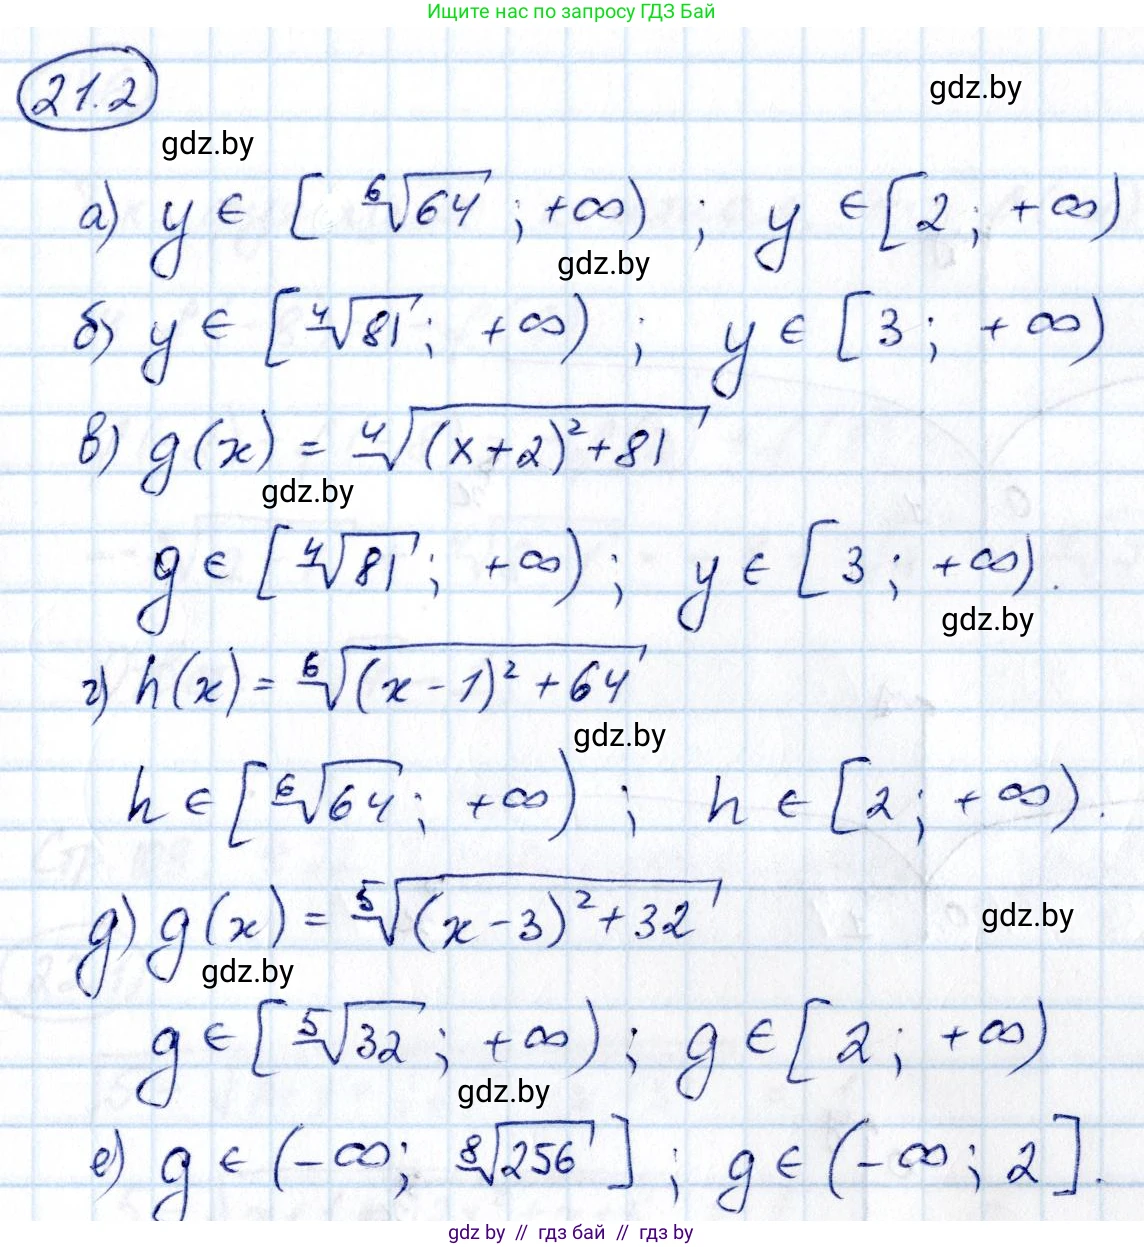 Ищите нас по запросу ГДЗ Бай
21.2
gdz.by
gdz.by
а) y ∈ [ ⁶√64 ; +∞) ; y ∈ [2 ; +∞)
gdz.by
б) y ∈ [ ⁴√81 ; +∞) ; y ∈ [3 ; +∞)
в) g(x) = ⁴√((x+2)²+81)
gdz.by
g ∈ [ ⁴√81 ; +∞) ; y ∈ [3 ; +∞).
gdz.by
г) h(x) = ⁶√((x-1)² + 64)
gdz.by
h ∈ [ ⁶√64 ; +∞) ; h ∈ [2 ; +∞).
д) g(x) = ⁵√((x-3)²+32)
gdz.by
gdz.by
g ∈ [ ⁵√32 ; +∞) ; g ∈ [2 ; +∞)
gdz.by
е) g ∈ (-∞; ⁸√256 ] ; g ∈ (-∞; 2].
gdz by // гдз бай // гдз by